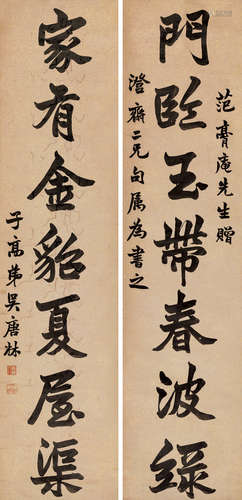 門臨玉帶春波綠
范膏庵先生贈
澄齋二兄句属為書之
家有金貂夏屋渠
子高弟吴唐林